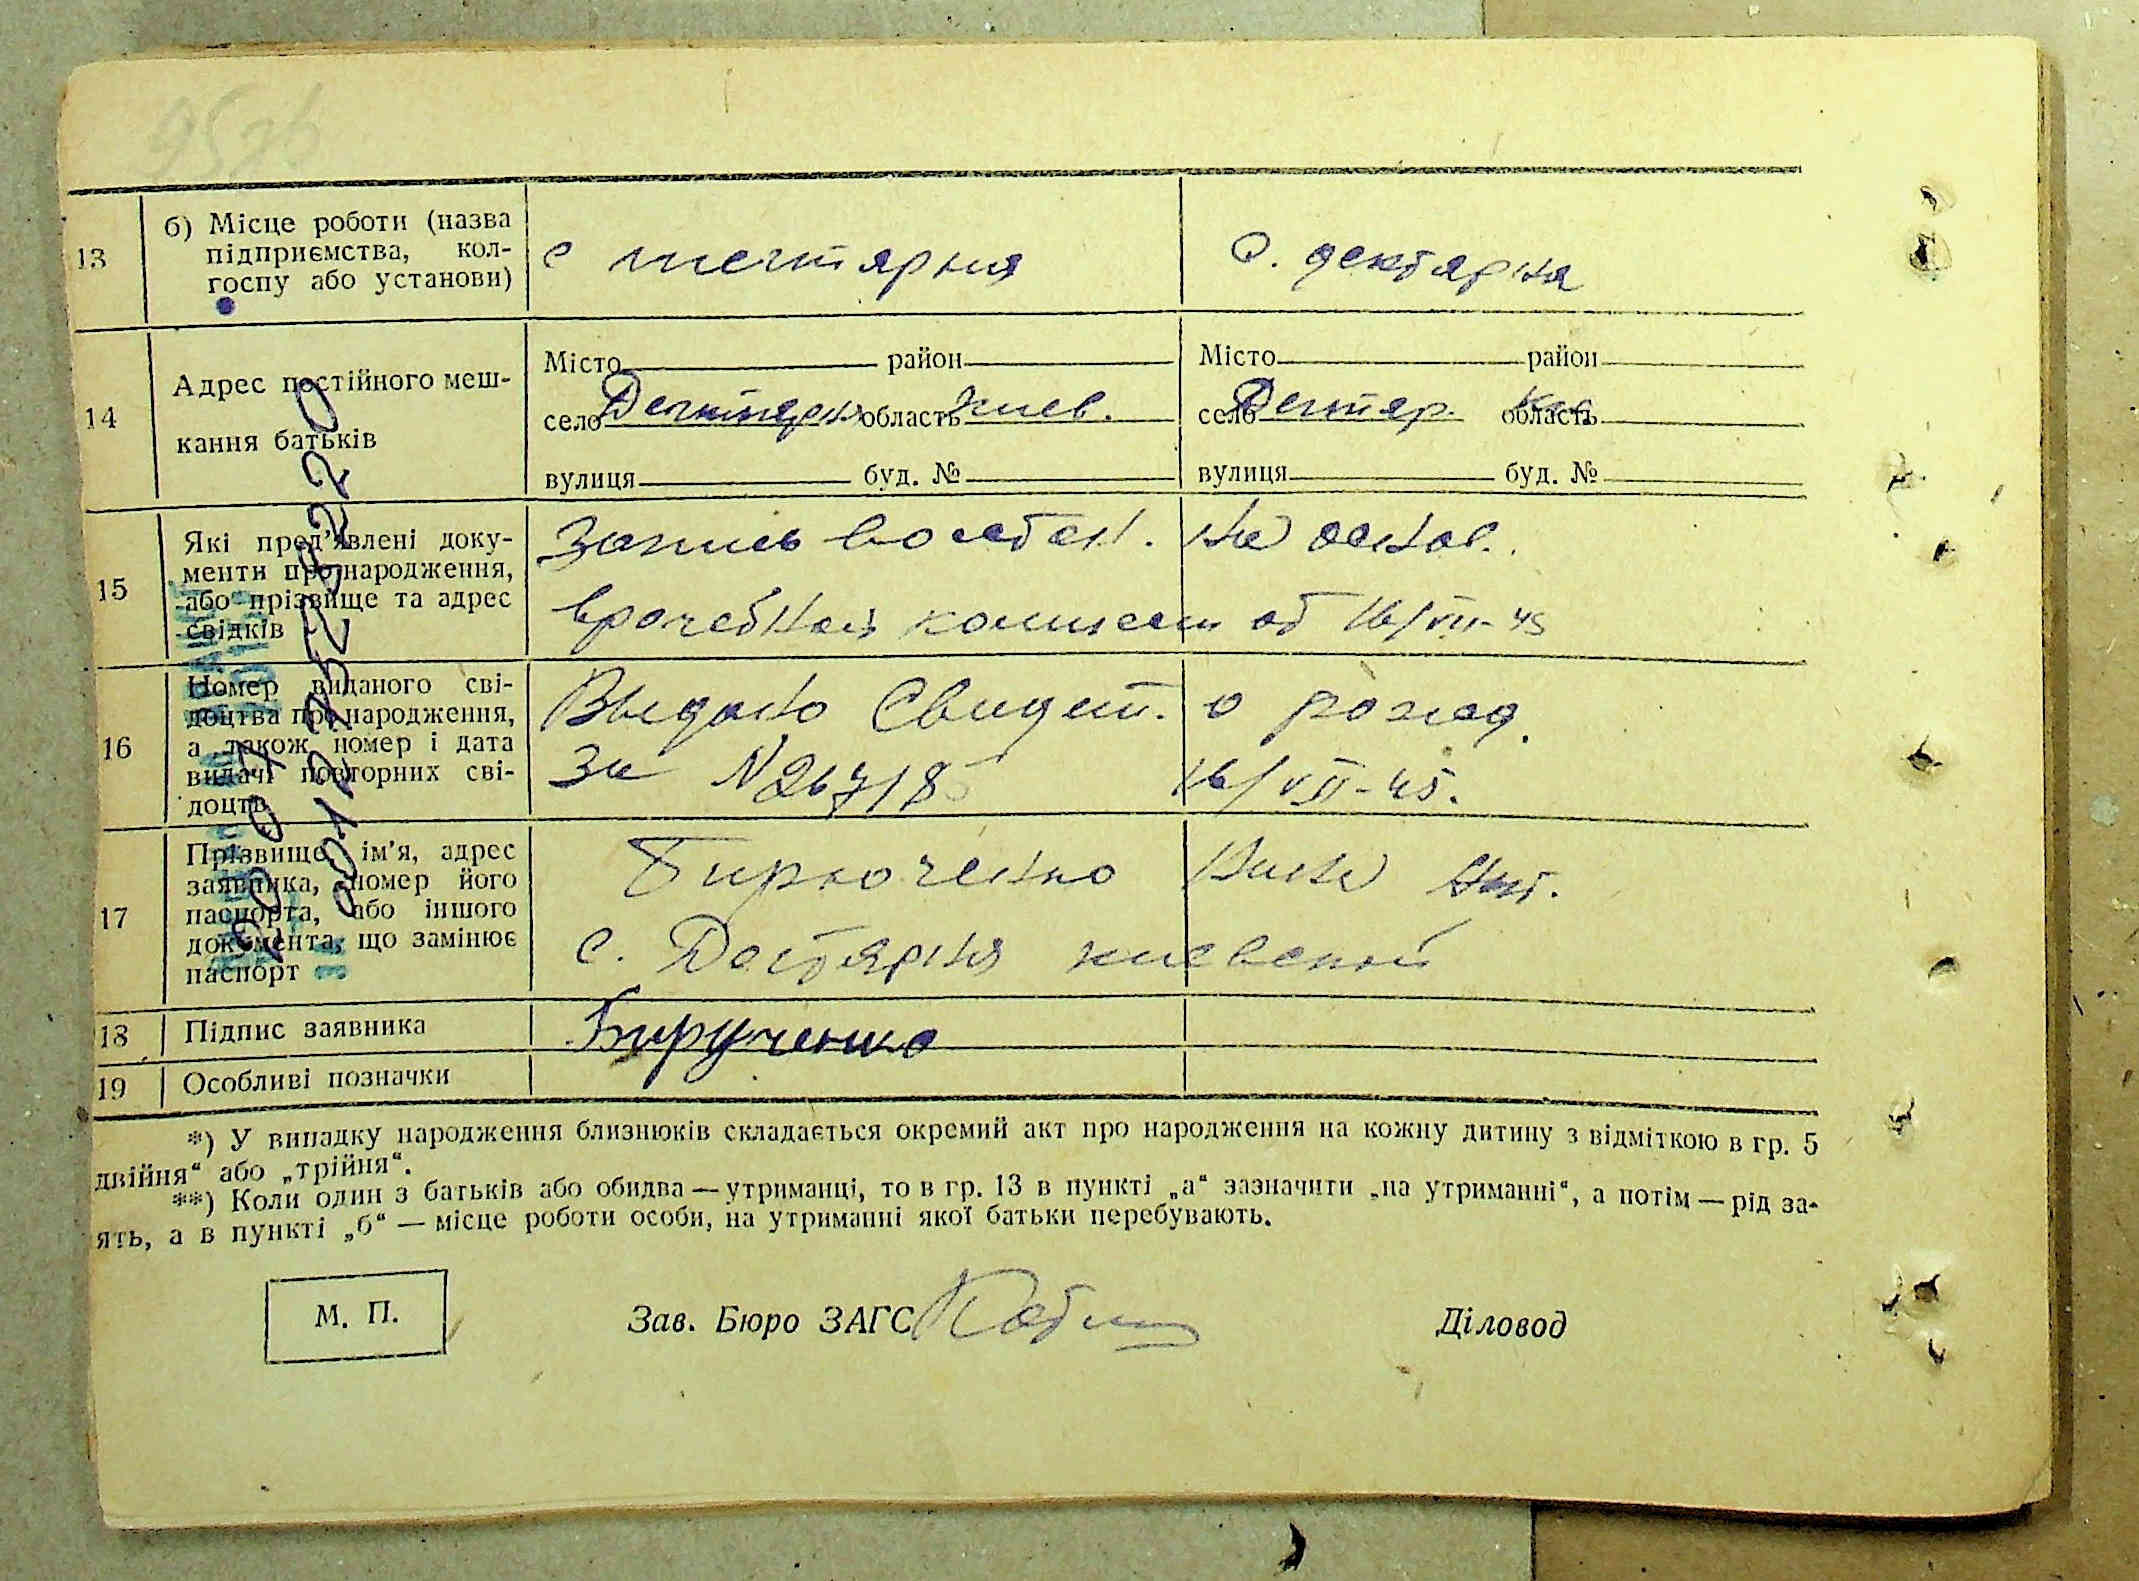 13
б) Місце роботи (назва
підприємства, кол-
госпу або установи)
с
с. дектярня
14
Адрес постійного меш-
кання батьків
Місто район
село Дегтярня область Киев.
вулиця буд. №
Місто район
село Дегтяр. область
вулиця буд. №
15
Які пред'явлені доку-
менти про народження,
або прізвище та адрес
свідків
Запись восстан. на основ.
врачебной комисеи от 16/VII-45
16
Номер виданого сві-
доцтва про народження,
а також номер і дата
видачі повторних сві-
доцтв
Выдано Свидет. о рожд.
За N 26718 16/VII-45.
17
Прізвище, ім'я, адрес
заявника, номер його
паспорта, або іншого
документа, що замінює
паспорт
Бирюченко
с. Дегтярня киевской
18
Підпис заявника
Бирученко
19
Особливі позначки
*) У випадку народження близнюків складається окремий акт про народження на кожну дитину з відміткою в гр. 5
двійня“ або „трійня“.
**) Коли один з батьків або обидва — утриманці, то в гр. 13 в пункті „а“ зазначити „на утриманні“, а потім — рід за-
ять, а в пункті „б“ — місце роботи особи, на утриманні якої батьки перебувають.
М. П.
Зав. Бюро ЗАГС
Діловод